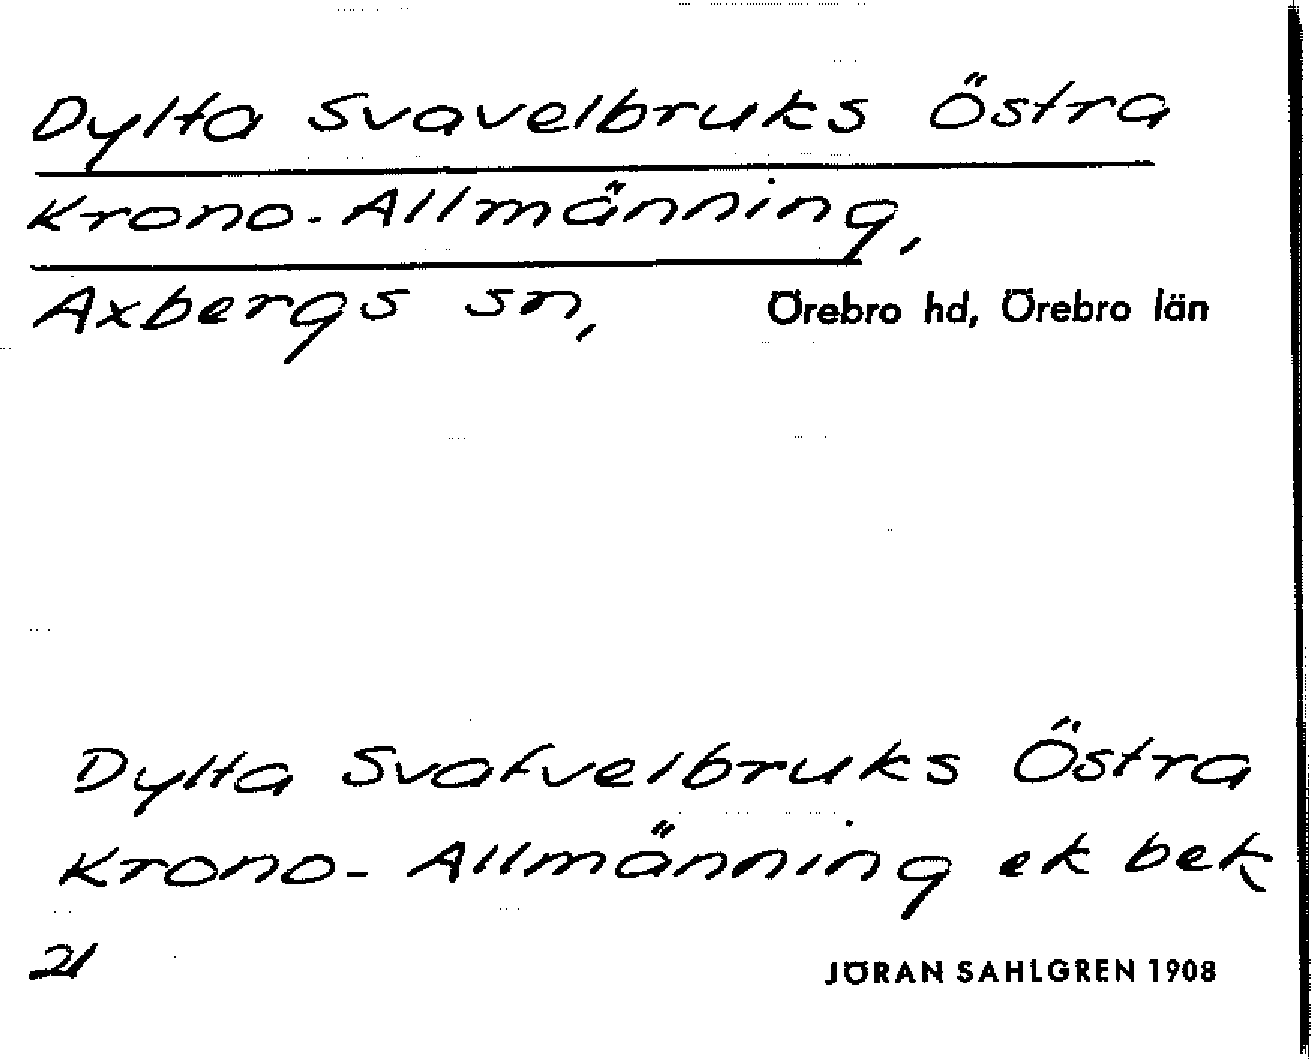 Dylta Svavelbruks Östra
Krono-Allmänning,
Axbergs sn, Örebro hd, Örebro län
Dylta Svafvelbruks Östra
Krono-Allmänning ek bek
21
JÖRAN SAHLGREN 1908